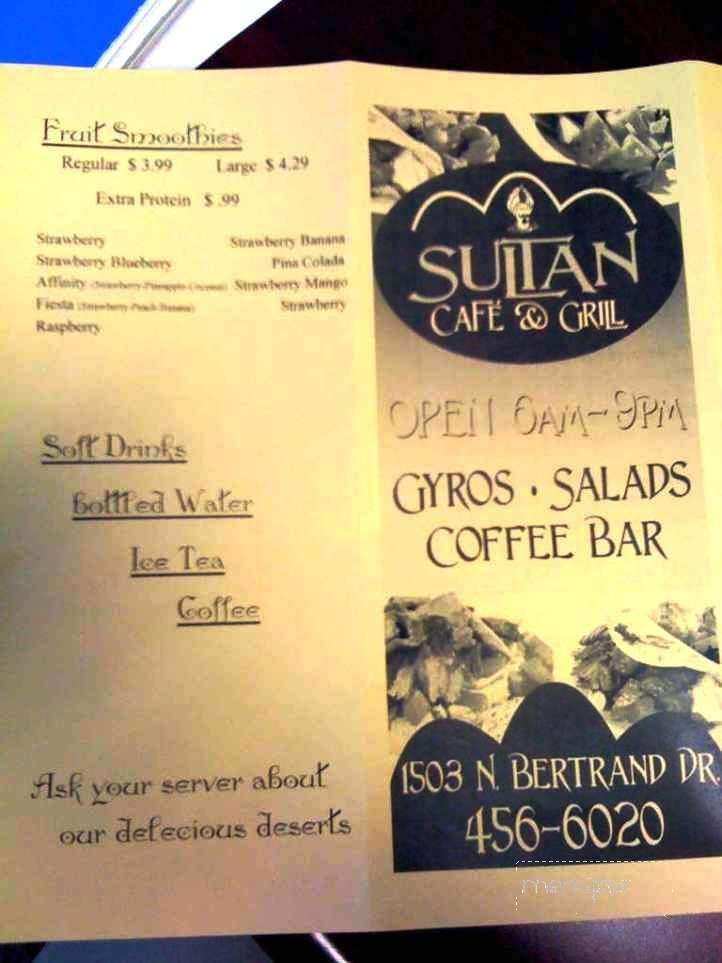 Fruit Smoothies
Regular $ 3.99 Large $ 4.29
Extra Protein $ .99
Strawberry Strawberry Banana
Strawberry Blueberry Pina Colada
Affinity (Strawberry-Pineapple-Coconut) Strawberry Mango
Fiesta (Strawberry-Peach-Banana) Strawberry
Raspberry
Soft Drinks
Bottled Water
Ice Tea
Coffee
Ask your server about
our delecious deserts
SULTAN
CAFÉ & GRILL
OPEN 6AM-9PM
GYROS • SALADS
COFFEE BAR
1503 N. BERTRAND DR.
456-6020